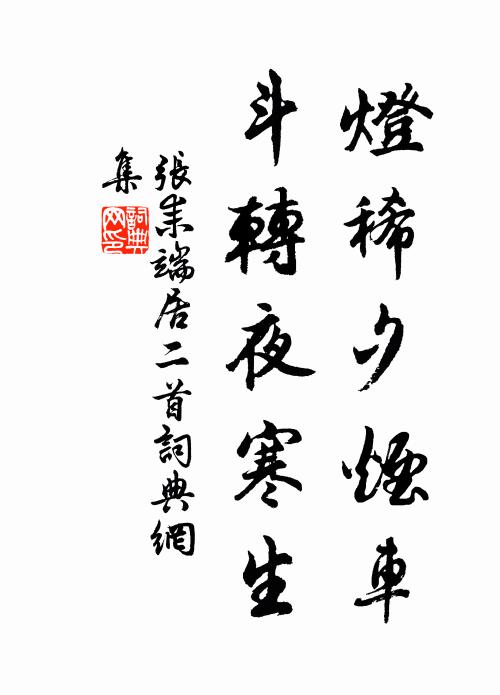 燈稀夕煙車
斗轉夜寒生
張耒端居二首詞典網
集
詞典網印